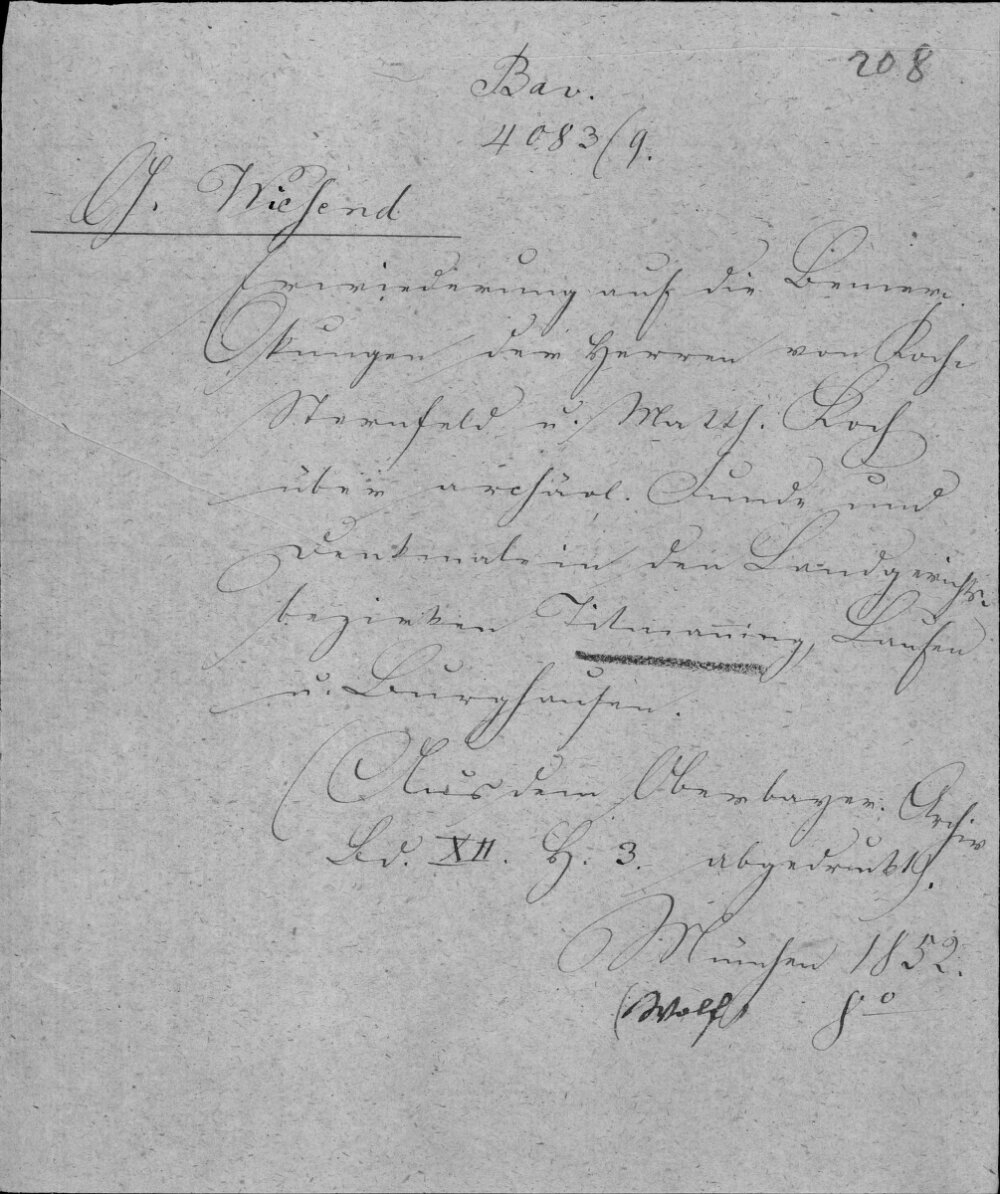 208
Bav.
4083/9.
G. Wiesend
Erwiederung auf die Bemer-
kungen der Herren von Koch-
Sternfeld u. Matth. Koch
über archäol. Funde und
Denkmale in den Landgerichts-
bezirken Titmaning, Laufen
u. Burghausen.
(Aus dem Oberbayer. Archiv
Bd. XII. H. 3. abgedruckt).
München 1852.
(Wolf) 8º